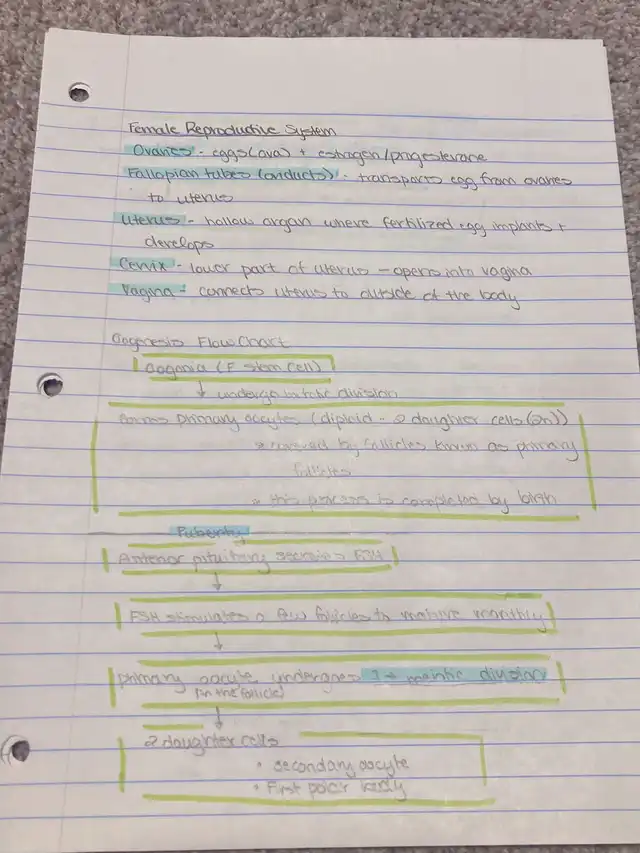 Female Reproductive System
Ovaries - eggs (ova) + estrogen/progesterone
Fallopian tubes (oviducts) - transports egg from ovaries
to uterus
Uterus - hollow organ where fertilized egg implants +
develops
Cervix - lower part of uterus - opens into vagina
Vagina - connects uterus to outside of the body
Oogenesis Flow Chart
Oogonia (F stem cell)
↓ undergo mitotic division
primary oocytes (diploid - 2 daughter cells (2n))
covered by follicles known as primary
follicles
this process is completed by birth
Puberty
Anterior pituitary secretes FSH
↓
FSH stimulates a few follicles to mature monthly
↓
primary oocyte undergoes 1st meiotic division
(in the follicle)
↓
2 daughter cells
• secondary oocyte
• First polar body